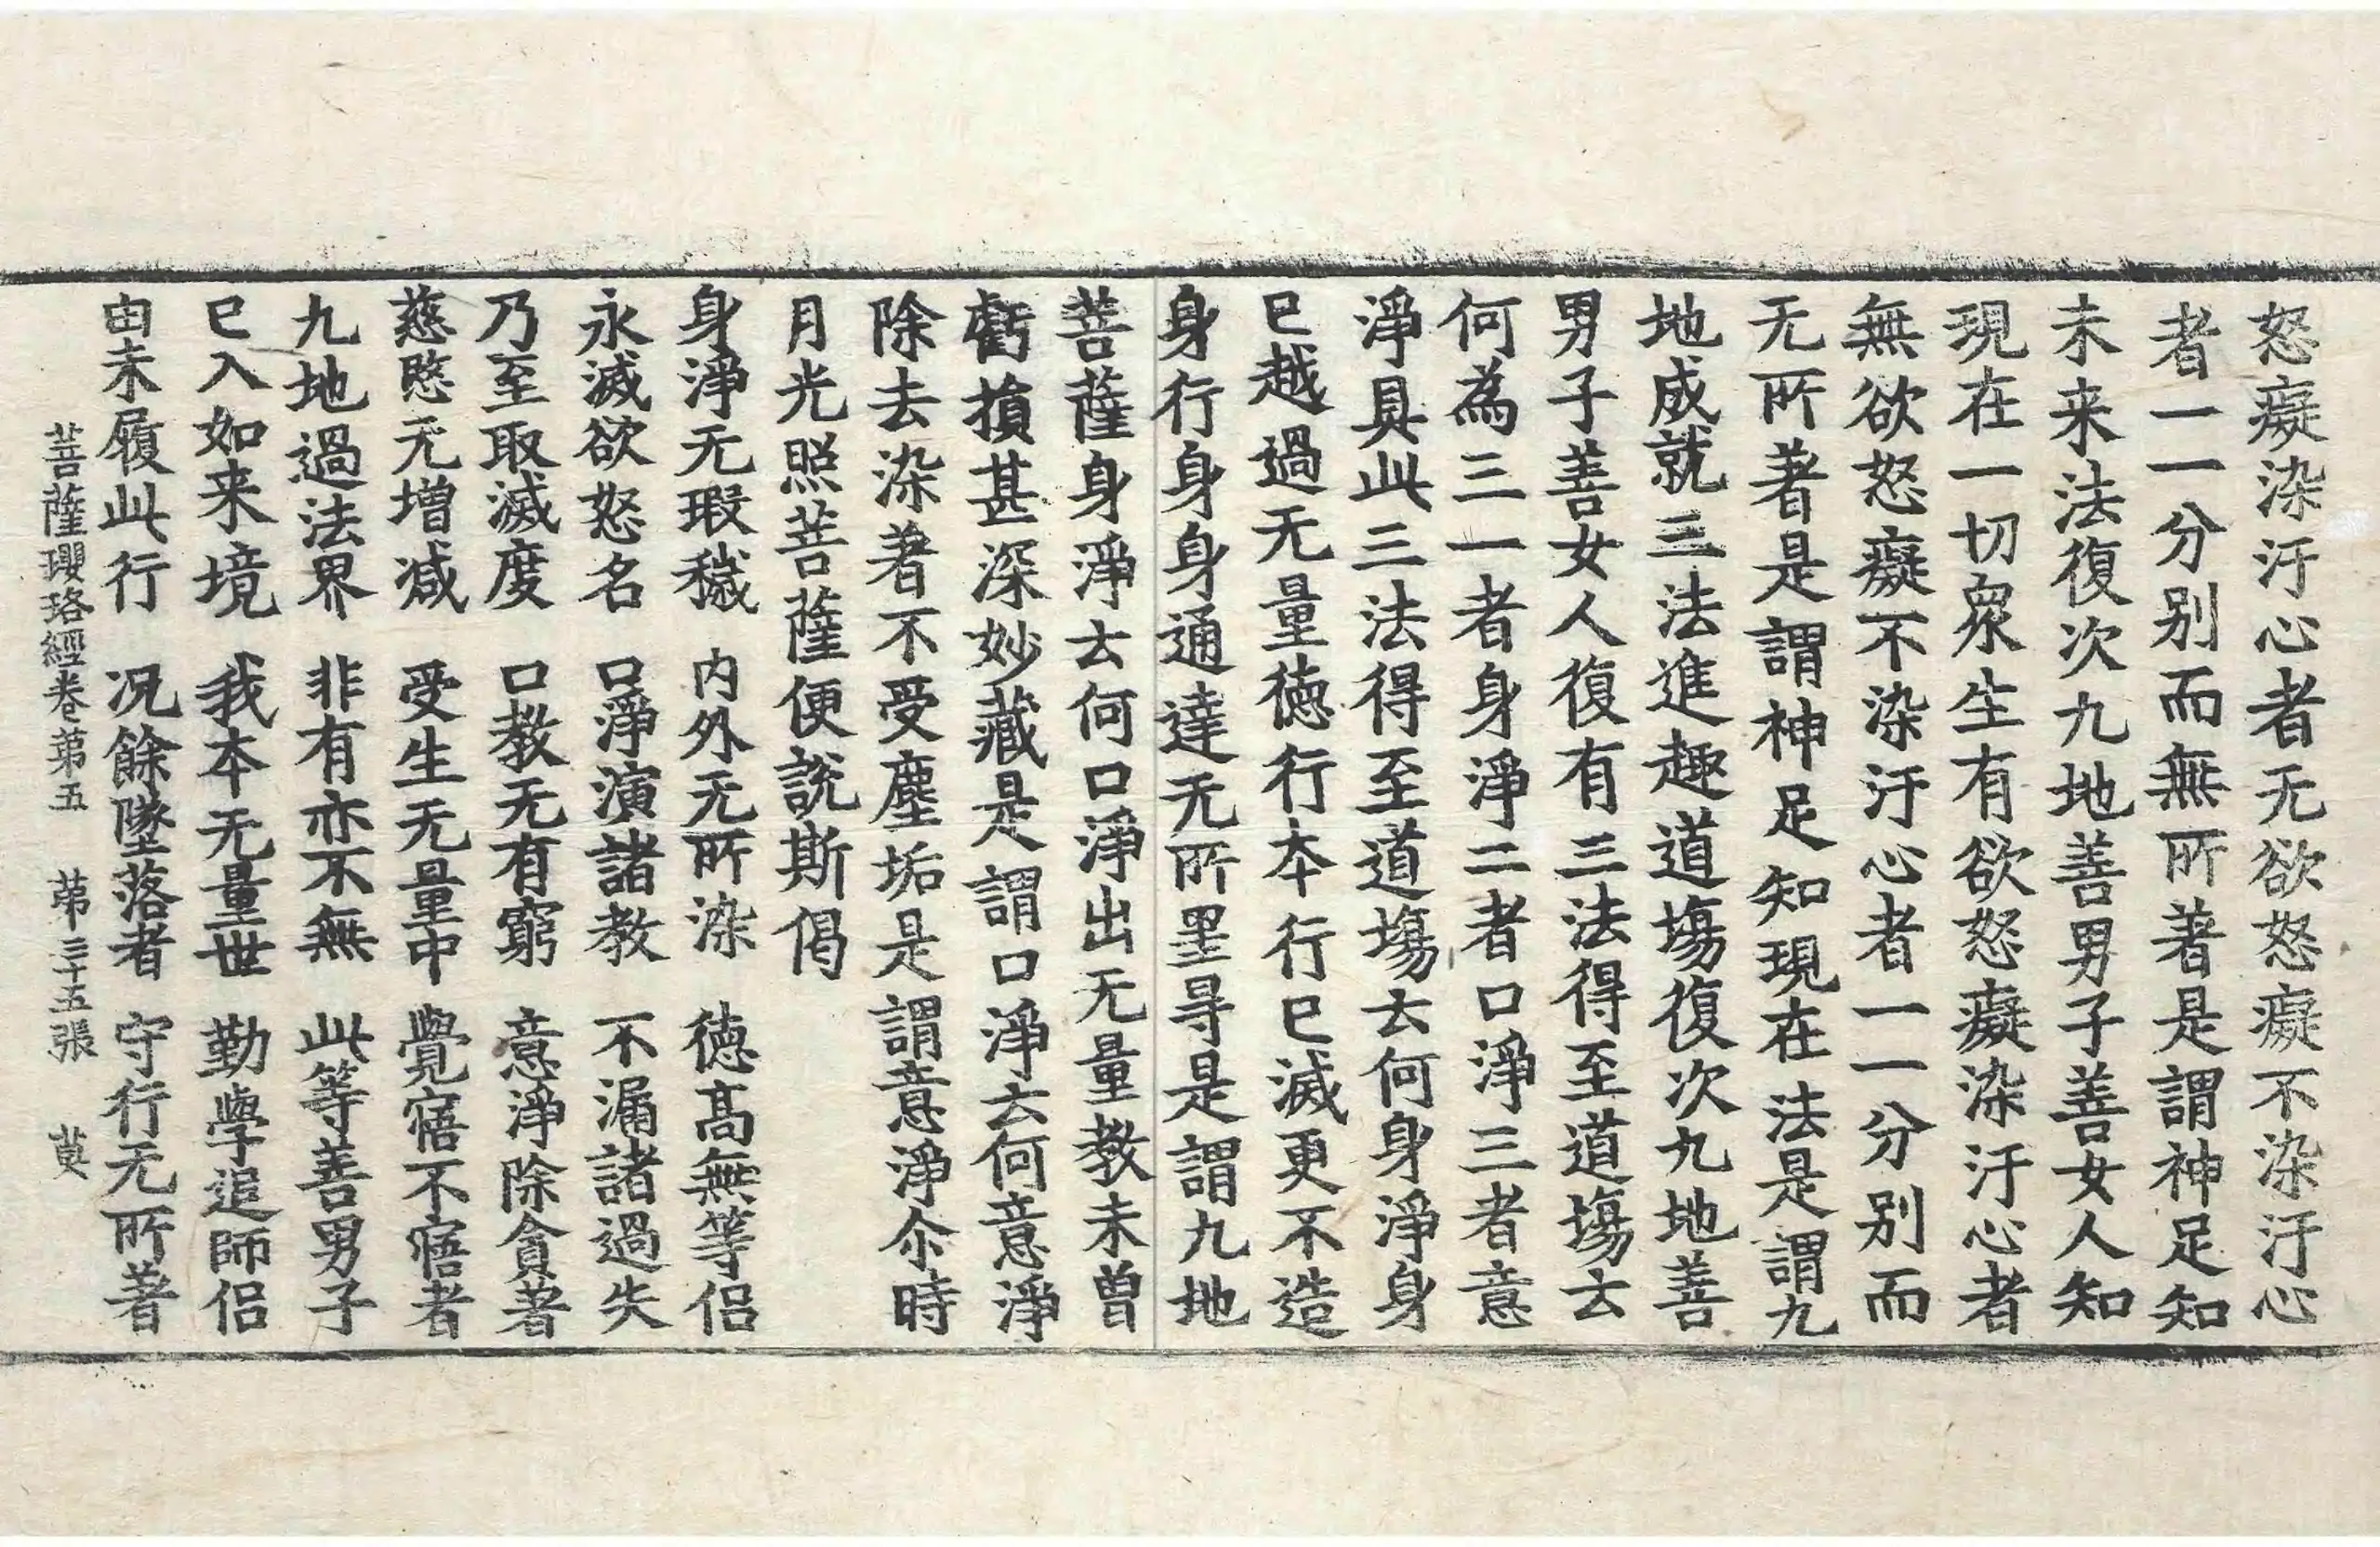 怒癡染汙心者无欲怒癡不染汙心
者一一分别而無所著是謂神足知
未来法復次九地善男子善女人知
現在一切衆生有欲怒癡染汙心者
無欲怒癡不染汙心者一一分别而
无所著是謂神足知現在法是謂九
地成就三法進趣道塲復次九地善
男子善女人復有三法得至道塲云
何為三一者身淨二者口淨三者意
淨具此三法得至道塲云何身淨身
已越過无量徳行本行已滅更不造
身行身身通達无所罣㝵是謂九地
菩薩身淨云何口淨出无量教未曾
虧損甚深妙藏是謂口淨云何意淨
除去染著不受塵垢是謂意淨尒時
月光照菩薩便說斯偈
身淨无瑕穢 内外无所染 徳髙無等侣
永滅欲怒名 口淨演諸教 不漏諸過失
乃至取滅度 口教无有窮 意淨除貪著
慈愍无增減 受生无量中 覺寤不寤者
九地過法界 非有亦不無 此等善男子
已入如来境 我本无量世 勤學追師侣
由未履此行 况餘墜落者 守行无所著
菩薩瓔珞經卷苐五 苐三十五張